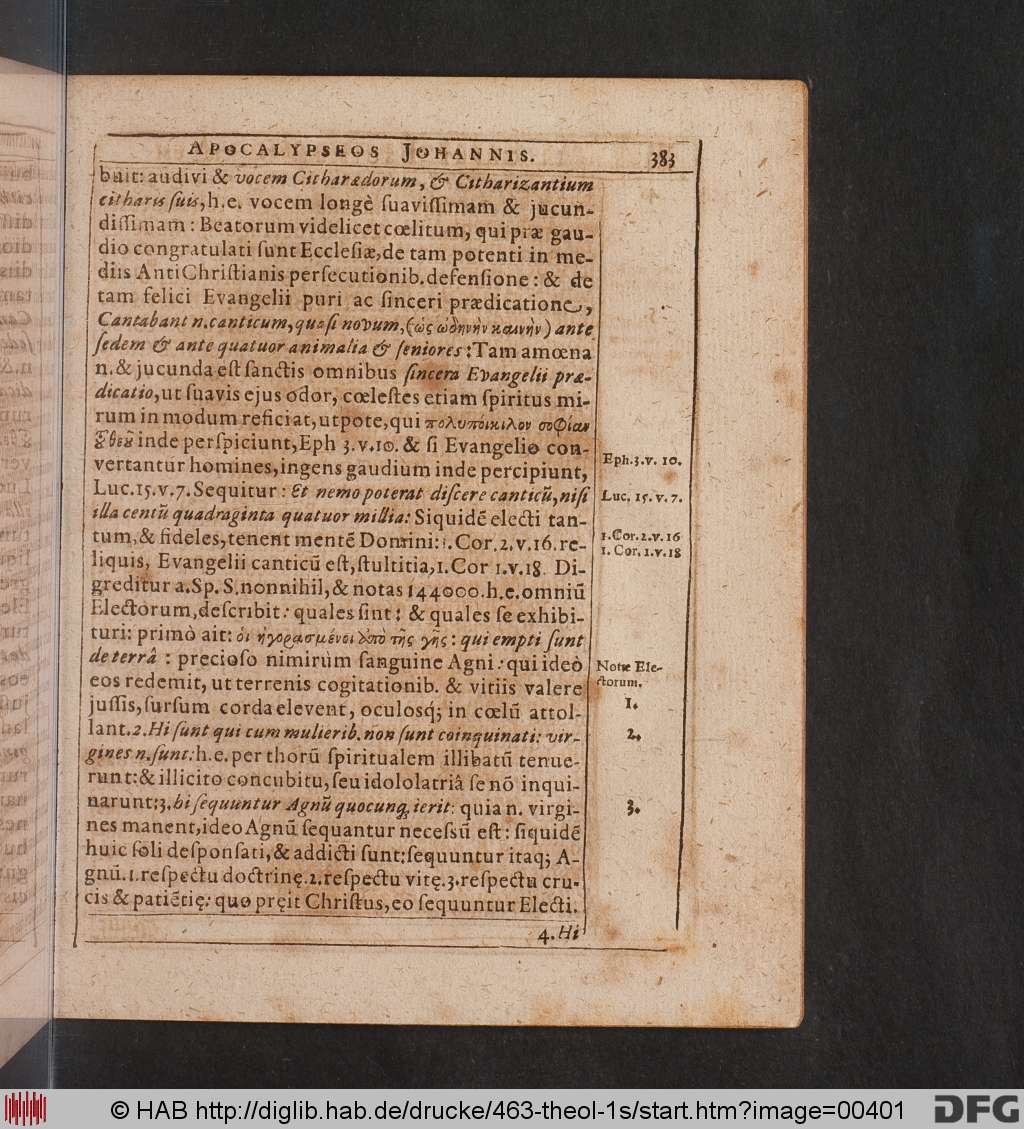 APOCALYPSEOS JOHANNIS. 383
buit: audivi & vocem Citharædorum, & Citharizantium
citharis ſuis, h.e. vocem longè ſuaviſſimam & jucun-
diſſimam: Beatorum videlicet cœlitum, qui præ gau-
dio congratulati ſunt Eccleſiæ, de tam potenti in me-
diis AntiChriſtianis perſecutionib. defenſione: & de
tam felici Evangelii puri ac ſinceri prædicatione,
Cantabant n. canticum, quaſi novum, (ὡς ᾠδηνὴν καινὴν) ante
ſedem & ante quatuor animalia & ſeniores: Tam amœna
n. & jucunda eſt ſanctis omnibus ſincera Evangelii præ-
dicatio, ut ſuavis ejus odor, cœleſtes etiam ſpiritus mi-
rum in modum reficiat, utpote, qui πολυποίκιλον σοφίαν
τοῦ θεοῦ inde perſpiciunt, Eph 3. v. 10. & ſi Evangelio con-
vertantur homines, ingens gaudium inde percipiunt,
Luc. 15. v. 7. Sequitur: Et nemo poterat diſcere canticū, niſi
illa centū quadraginta quatuor millia: Siquidē electi tan-
tum, & fideles, tenent mentē Domini: 1. Cor. 2. v. 16. re-
liquis, Evangelii canticū eſt, ſtultitia, 1. Cor 1. v. 18. Di-
greditur a. Sp. S. nonnihil, & notas 144000. h.e. omniū
Electorum, deſcribit: quales ſint: & quales ſe exhibi-
turi: primò ait: οἱ ἠγορασμένοι ἀπὸ τῆς γῆς: qui empti ſunt
de terrâ: precioſo nimirùm ſanguine Agni: qui ideò
eos redemit, ut terrenis cogitationib. & vitiis valere
juſſis, ſurſum corda elevent, oculosq; in cœlū attol-
lant. 2. Hi ſunt qui cum mulierib. non ſunt coinquinati: vir-
gines n. ſunt: h.e. per thorū ſpiritualem illibatū tenue-
runt: & illicito concubitu, ſeu idololatriâ ſe nō inqui-
narunt: 3. hi ſequuntur Agnū quocunq; ierit: quia n. virgi-
nes manent, ideo Agnū ſequantur neceſsū eſt: ſiquidē
huic ſoli deſponſati, & addicti ſunt: ſequuntur itaq; A-
gnū. 1. reſpectu doctrinę. 2. reſpectu vitę. 3. reſpectu cru-
cis & patiētię: quo pręit Chriſtus, eo ſequuntur Electi.
4. Hi
Eph. 3. v. 10.
Luc. 15. v. 7.
1. Cor. 2. v. 16
1. Cor. 1. v. 18
Notæ Ele-
ctorum.
1.
2.
3.
© HAB http://diglib.hab.de/drucke/463-theol-1s/start.htm?image=00401
DFG